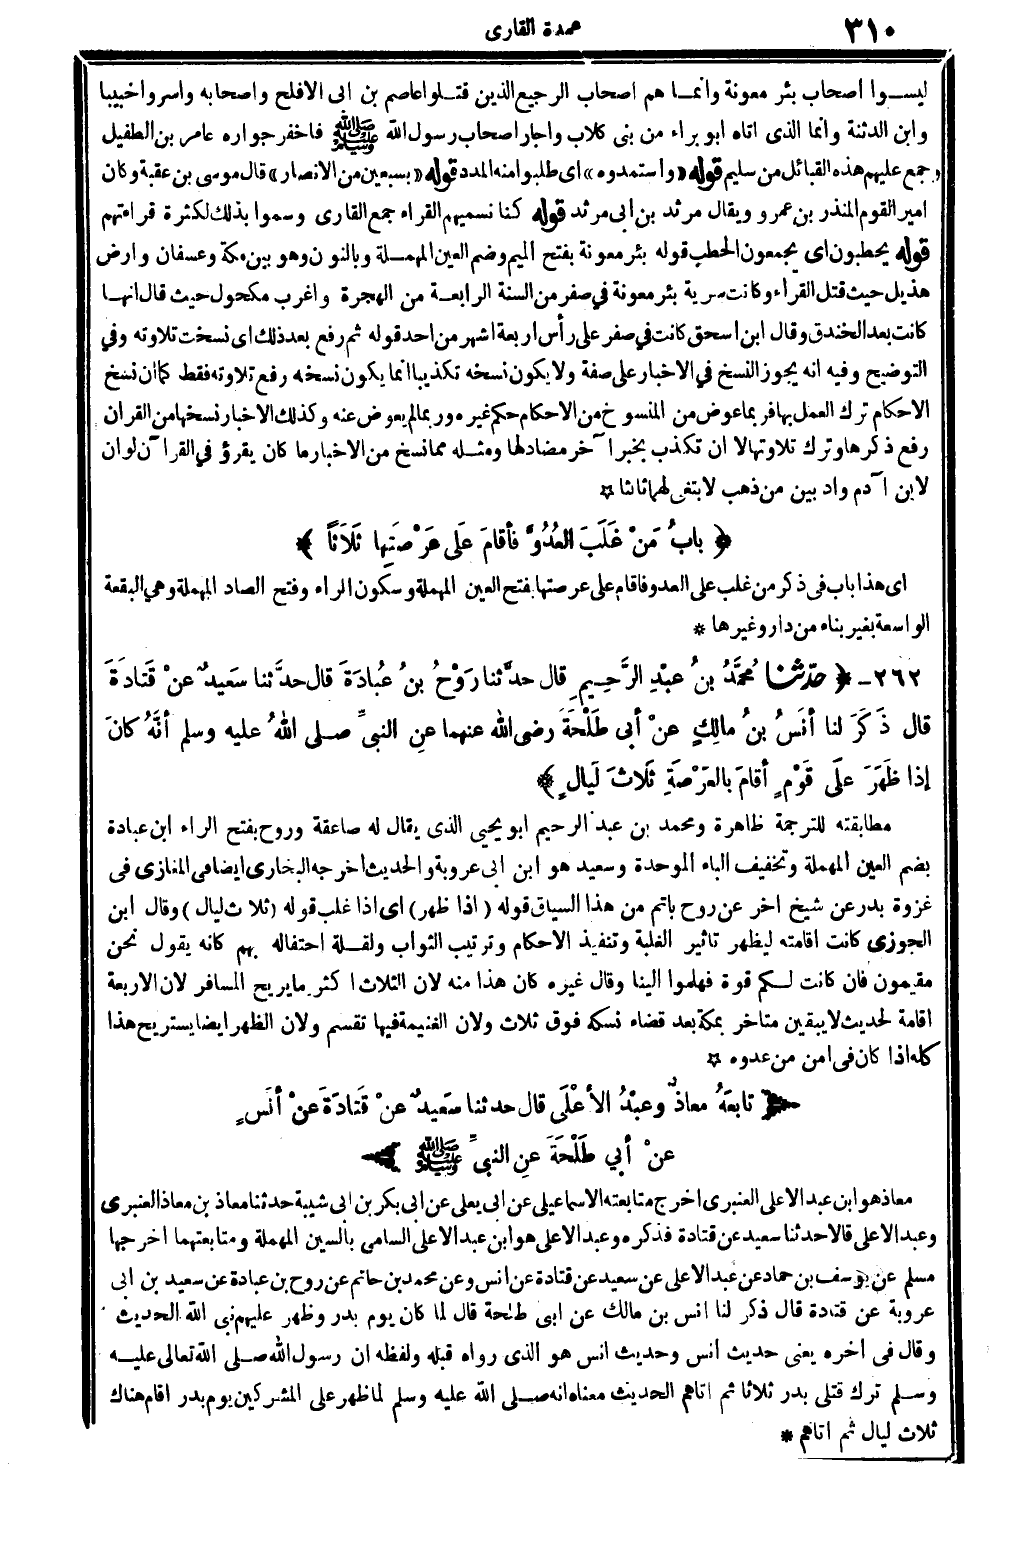 ٣١٠
عمدة القارى
ليسوا اصحاب بئر معونة وانما هم اصحاب الرجيع الذين قتلوا عاصم بن ابى الافلح واصحابه واسروا خبيبا
وابن الدثنة وانما الذى اتاه ابو براء من بنى كلاب واجار اصحاب رسول الله ﷺ فاخفر جواره عامر بن الطفيل
وجمع عليهم هذه القبائل من سليم قوله «واستمدوه» اى طلبوا منه المدد قوله «بسبعين من الانصار» قال موسى بن عقبة وكان
امير القوم المنذر بن عمرو ويقال مرثد بن ابى مرثد قوله كنا نسميهم القراء جمع القارى وسموا بذلك لكثرة قراءتهم
قوله يحطبون اى يجمعون الحطب قوله بئر معونة بفتح الميم وضم العين المهملة وبالنون وهو بين مكة وعسفان وارض
هذيل حيث قتل القراء وكانت سرية بئر معونة في صفر من السنة الرابعة من الهجرة واغرب مكحول حيث قال انها
كانت بعد الخندق وقال ابن اسحق كانت في صفر على رأس اربعة اشهر من احد قوله ثم رفع بعد ذلك اى نسخت تلاوته وفي
التوضيح وفيه انه يجوز النسخ في الاخبار على صفة ولا يكون نسخه تكذيبا انما يكون نسخه رفع تلاوته فقط كما ان نسخ
الاحكام ترك العمل بها فربما عوض من المنسوخ من الاحكام حكم غيره وربما لم يعوض عنه وكذلك الاخبار نسخها من القرآن
رفع ذكرها وترك تلاوتها لا ان تكذب بخبر آخر مضاد لها ومثله مما نسخ من الاخبار ما كان يقرؤ في القرآن لو ان
لابن آدم واديين من ذهب لابتغى لهما ثالثا ☆
﴿ بابُ مَنْ غَلَبَ العَدُوَّ فأقامَ عَلَى عَرْصَتِها ثَلَاثاً ﴾
اى هذا باب فى ذكر من غلب على العدو فاقام على عرصتها بفتح العين المهملة وسكون الراء وفتح الصاد المهملة وهي البقعة
الواسعة بغير بناء من دار وغيرها *
٢٦٢ - ﴿ حدّثنا مُحَمَّدُ بنُ عبْدِ الرَّحِيمِ قال حدَّثنا رَوْحُ بنُ عُبادَةَ قال حدَّثنا سَعيدٌ عنْ قَتادَةَ
قال ذَكَرَ لنا أنَسُ بنُ مالِكٍ عنْ أبي طَلْحَةَ رضى الله عنهما عنِ النبيِّ صلى اللهُ عليه وسلم أنَّهُ كانَ
إذا ظَهَرَ علَى قَوْمٍ أقامَ بالعَرْصَةِ ثَلَاثَ لَيالٍ ﴾
مطابقته للترجمة ظاهرة ومحمد بن عبد الرحيم ابو يحيى الذى يقال له صاعقة وروح بفتح الراء ابن عبادة
بضم العين المهملة وتخفيف الباء الموحدة وسعيد هو ابن ابى عروبة والحديث اخرجه البخارى ايضا فى المغازى فى
غزوة بدر عن شيخ اخر عن روح باتم من هذا السياق قوله ( اذا ظهر) اى اذا غلب قوله (ثلاث ليال) وقال ابن
الجوزى كانت اقامته ليظهر تاثير الغلبة وتنفيذ الاحكام وترتيب الثواب ولقلة احتفاله بهم كانه يقول نحن
مقيمون فان كانت لكم قوة فهلموا الينا وقال غيره كان هذا منه لان الثلاث اكثر مايريح المسافر لان الاربعة
اقامة لحديث لايبقين متاخر بمكة بعد قضاء نسكه فوق ثلاث ولان الغنيمة فيها تقسم ولان الظهر ايضا يستريح هذا
كله اذا كان فى امن من عدوه ☆
﴿ تابعَهُ معاذٌ وعبْدُ الأعْلَى قال حدثنا سَعيدٌ عنْ قَتادَةَ عنْ أنَسٍ
عنْ أبي طَلْحَةَ عنِ النبيِّ ﷺ ﴾
معاذ هو ابن عبد الاعلى العنبرى اخرج متابعته الاسماعيلى عن ابى يعلى عن ابى بكر بن ابى شيبة حدثنا معاذ بن معاذ العنبرى
وعبد الاعلى قالا حدثنا سعيد عن قتادة فذكره وعبد الاعلى هو ابن عبد الاعلى السامى بالسين المهملة ومتابعتهما اخرجها
مسلم عن يوسف بن حماد عن عبد الاعلى عن سعيد عن قتادة عن انس وعن محمد بن حاتم عن روح بن عبادة عن سعيد بن ابى
عروبة عن قتادة قال ذكر لنا انس بن مالك عن ابى طلحة قال لما كان يوم بدر وظهر عليهم نبى الله الحديث
وقال فى اخره يعنى حديث أنس وحديث انس هو الذى رواه قبله ولفظه ان رسول الله صلى الله تعالى عليه
وسلم ترك قتلى بدر ثلاثا ثم اتاهم الحديث معناه انه صلى الله عليه وسلم لما ظهر على المشركين يوم بدر اقام هناك
ثلاث ليال ثم اتاهم *